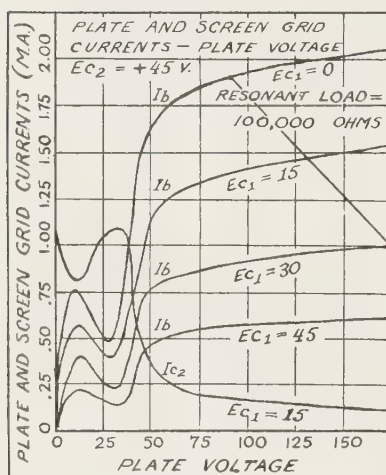 PLATE AND SCREEN GRID
CURRENTS – PLATE VOLTAGE
EC2 = +45 V.
EC1 = 0
Ib
RESONANT LOAD =
100,000 OHMS
Ib
EC1 = 15
Ib
EC1 = 30
Ib
EC1 = 45
Ic2
EC1 = 15
PLATE AND SCREEN GRID CURRENTS (M.A.)
2.00
1.75
1.50
1.25
1.00
.75
.50
.25
0
0 25 50 75 100 125 150
PLATE VOLTAGE